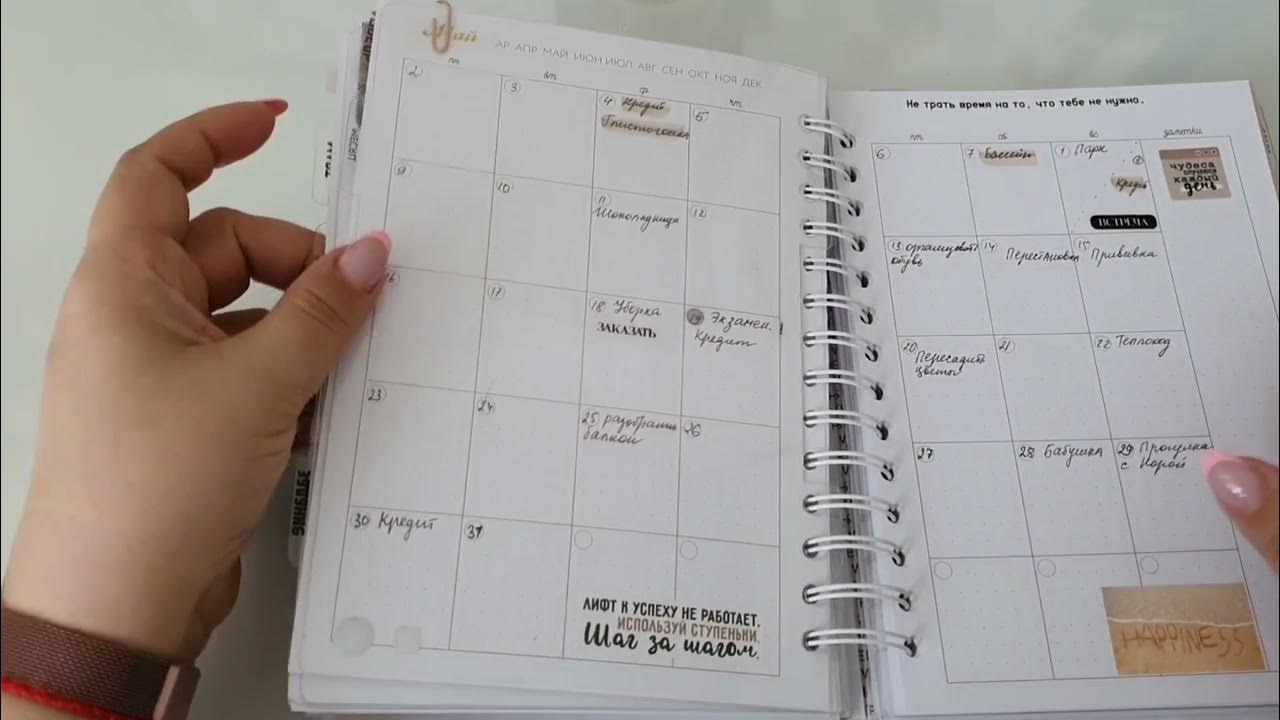 Май
АР АПР МАЙ ИЮН ИЮЛ АВГ СЕН ОКТ НОЯ ДЕК
пн вт ср чт
2 3 4 Кредит 5
9 10 11 Шоколадница 12
16 17 18 Уборка 19 Экзамен!
ЗАКАЗАТЬ Кредит
23 24 25 разобрать 26
балкон
30 Кредит 31
ЛИФТ К УСПЕХУ НЕ РАБОТАЕТ.
ИСПОЛЬЗУЙ СТУПЕНЬКИ.
Шаг за шагом.
Не трать время на то, что тебе не нужно.
пт сб вс заметки
6 7 Бассейн 1 Парк
8
Кредит
ВСТРЕЧА
чудеса
случаются
каждый
день
13 организовать 14 Перестановка 15 Прививка
обувь
20 Пересадить 21 22 Теплоход
цветы
27 28 Бабушка 29 Прогулка
с Корой
HAPPINESS